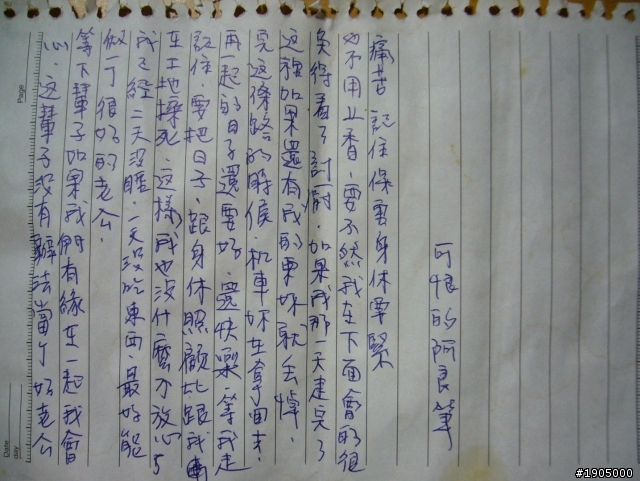 心.这輩子没有辦法當个好老公
等下輩子如果我們有緣在一起我會
做一个很好的老公.
我已經三天没睡.一天没吃東西.最好能
在土地操死.这樣我也没什麼不放心ㄋ
記住.要把日子.跟身体照顧比跟我
再一起的日子還要好.還快樂.等我走
完这條路的時候.机車妳在拿回去.
这種如果還有我的東妳就丢掉.
免得看了討厭.如果我那一天走完了
也不用上香.要不然我在下面會的很
痛苦 記住保重身体要緊
可恨的阿良筆
Page
Date
day
#1905000